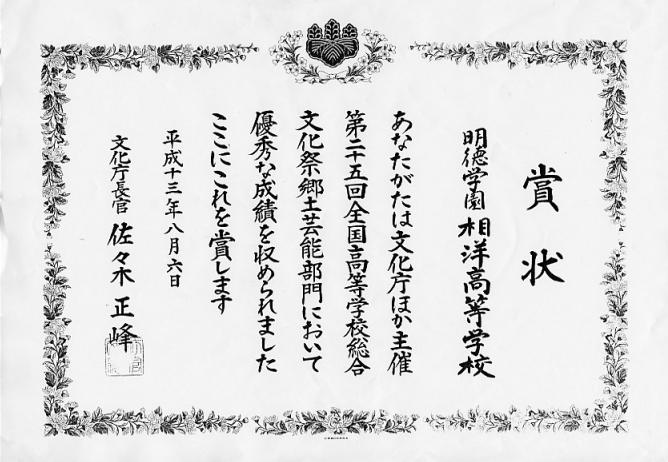 賞状
明徳学園 相洋高等学校
あなたがたは文化庁ほか主催
第二十五回全国高等学校総合
文化祭郷土芸能部門において
優秀な成績を収められました
ここにこれを賞します
平成十三年八月六日
文化庁長官 佐々木正峰